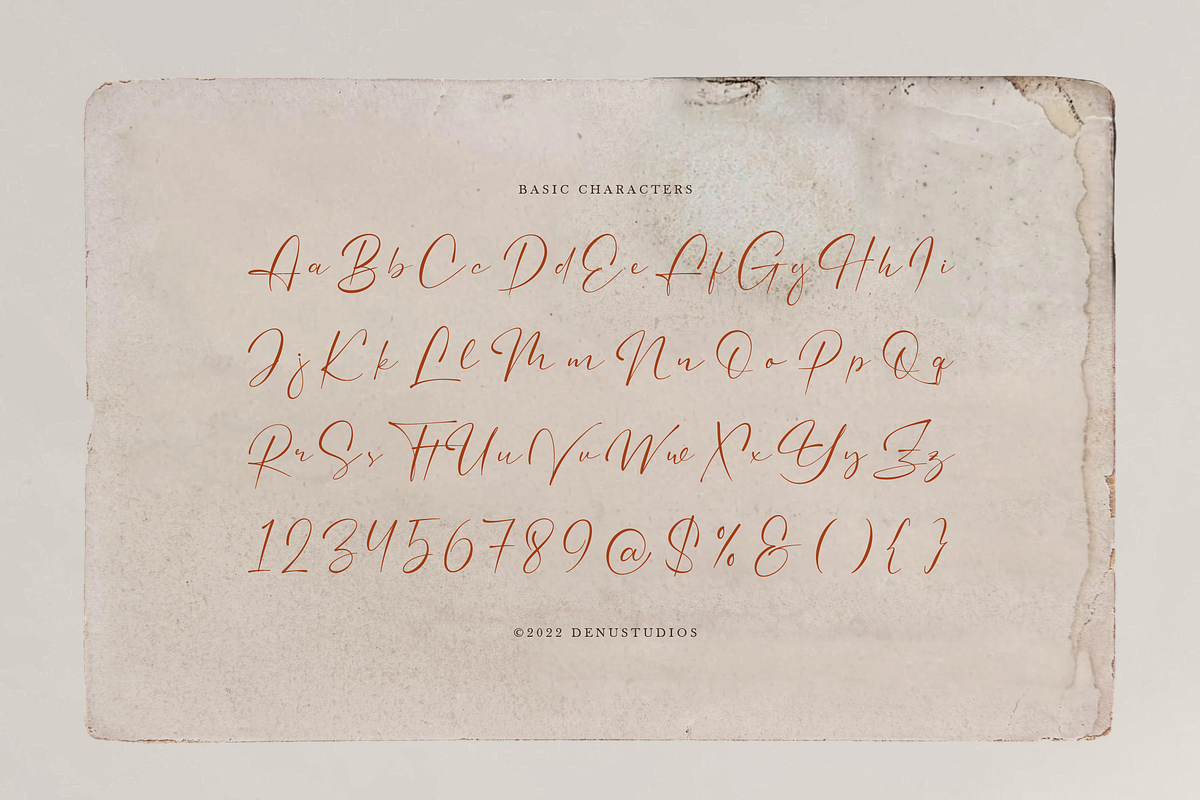 BASIC CHARACTERS
Aa Bb Cc Dd Ee Ff Gg Hh Ii
Jj Kk Ll Mm Nn Oo Pp Qq
Rr Ss Tt Uu Vv Ww Xx Yy Zz
123456789@$%&(){}
©2022 DENUSTUDIOS